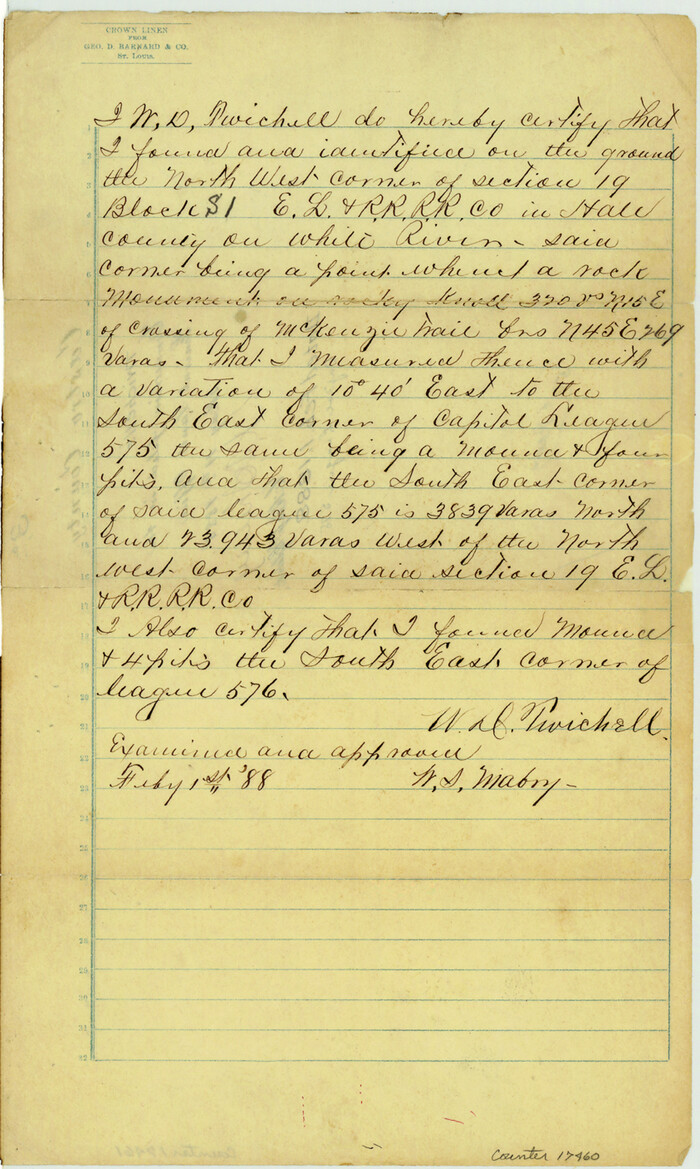 CROWN LINEN
FROM
GEO. D. BARNARD & CO.
ST. LOUIS.
I W, D, Twichell do hereby certify that
I found and identified on the ground
the North West corner of section 19
Block S1 E. L. & R.R. R.R. Co in Hale
county on White River - said
corner being a point whence a rock
Monument on rocky knoll 320 vs N15E
of crossing of McKenzie Trail brs N45E 269
varas - That I measured thence with
a variation of 10° 40' East to the
South East corner of Capitol League
575 the same being a mound & four
pits, and that the South East corner
of said league 575 is 3839 varas North
and 23,943 varas West of the North
west corner of said section 19 E. L.
& R.R. R.R. Co
I Also certify that I found Mound
& 4 pits the South East corner of
league 576.
W. D. Twichell.
Examined and approved
Feby 1st '88 W. S. Mabry -
Counter 17460